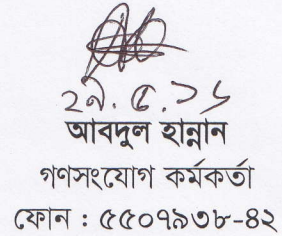 ২৯.৫.১৬
আবদুল হান্নান
গণসংযোগ কর্মকর্তা
ফোন : ৫৫০৭৯৩৮-৪২